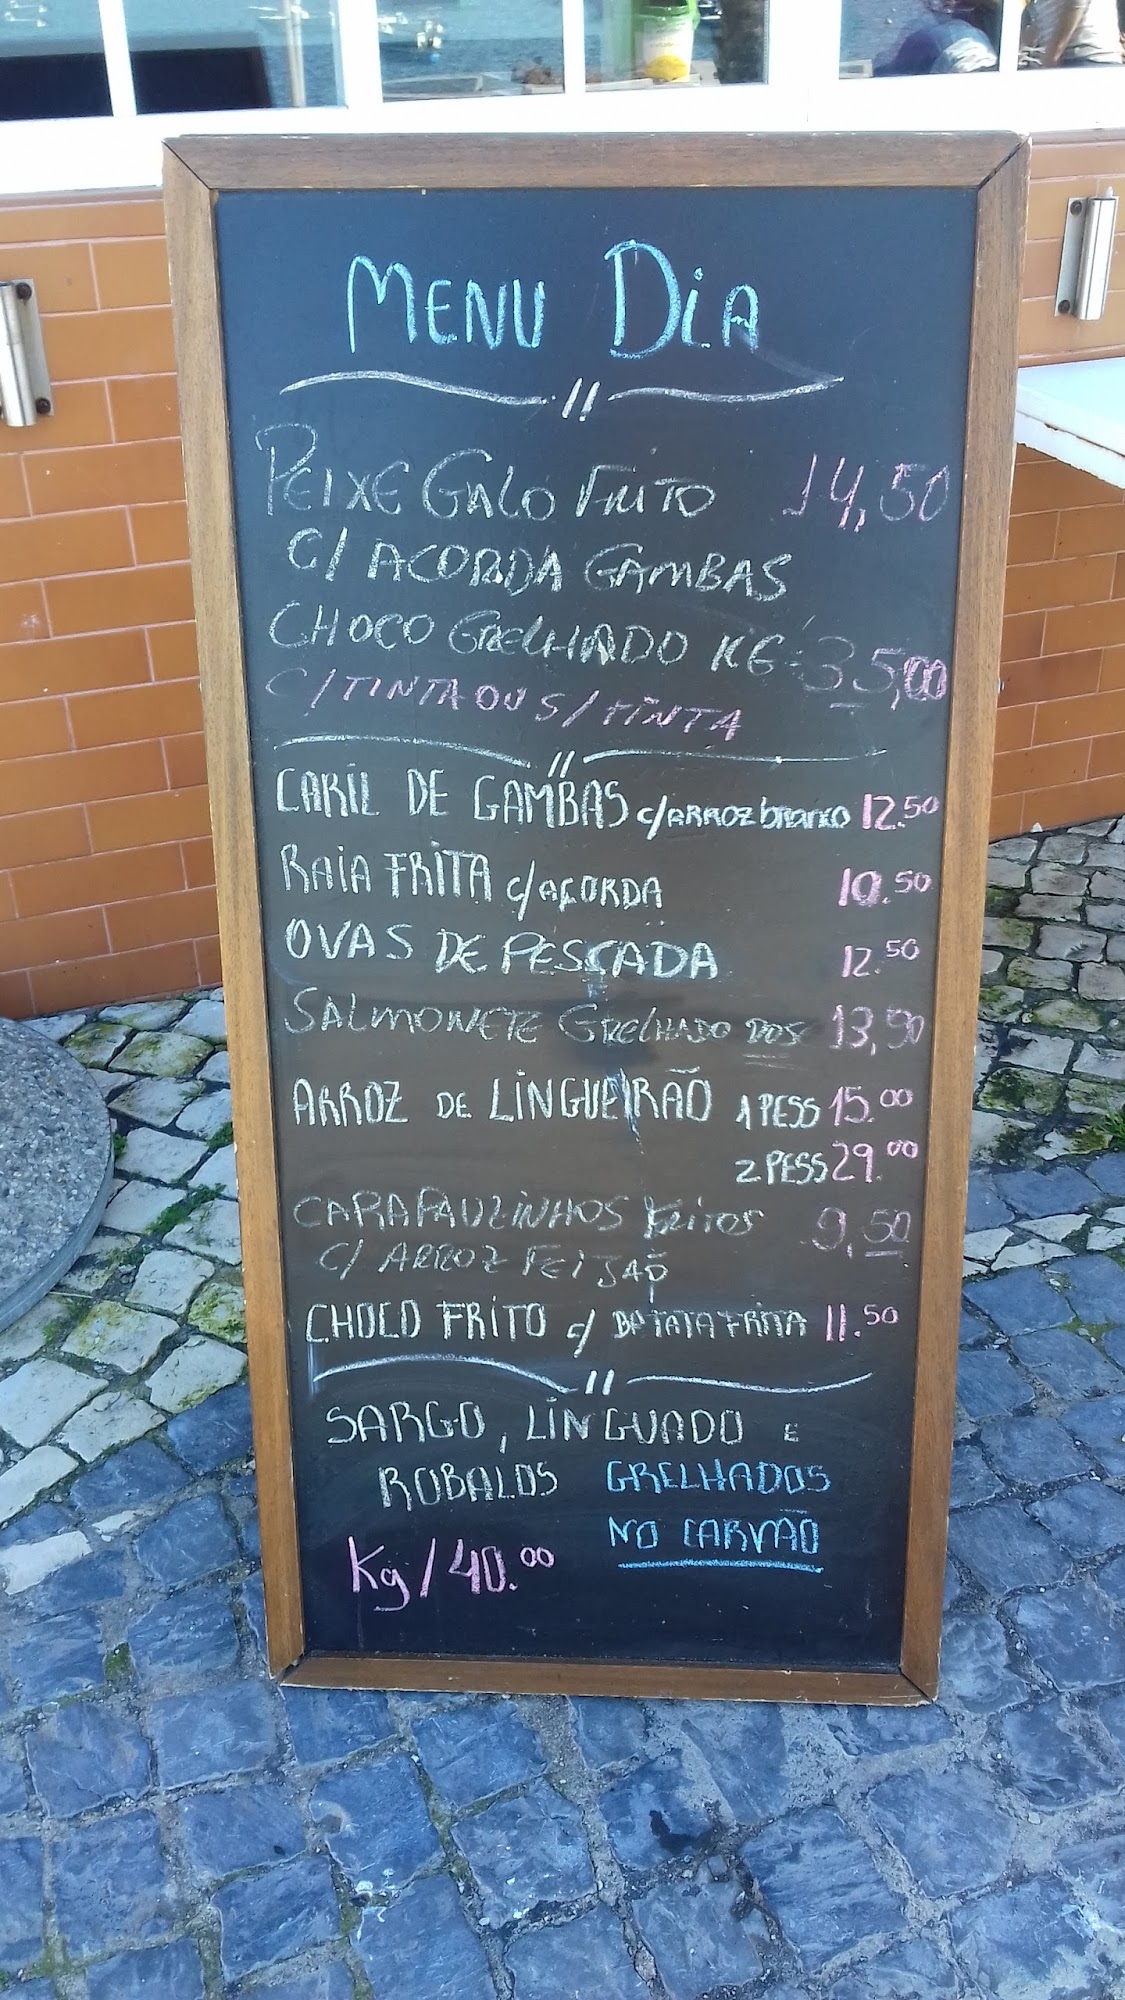 MENU DiA
PEIXE GALO FRITO 14,50
C/ ACORDA GAMBAS
CHOCO GRELHADO KG = 35,00
C/TINTA OU S/TINTA
CARIL DE GAMBAS c/ARROZ branco 12.50
RAIA FRITA c/AÇORDA 10.50
OVAS DE PESCADA 12.50
SALMONETE GRELHADO DOSE 13,50
ARROZ DE LINGUEIRÃO 1 PESS 15.00
2 PESS 29.00
CARAPAUZINHOS FRITOS 9,50
C/ ARROZ FEIJÃO
CHOCO FRITO c/ BATATA FRITA 11.50
SARGO, LINGUADO E
ROBALOS GRELHADOS
NO CARVÃO
Kg / 40.00